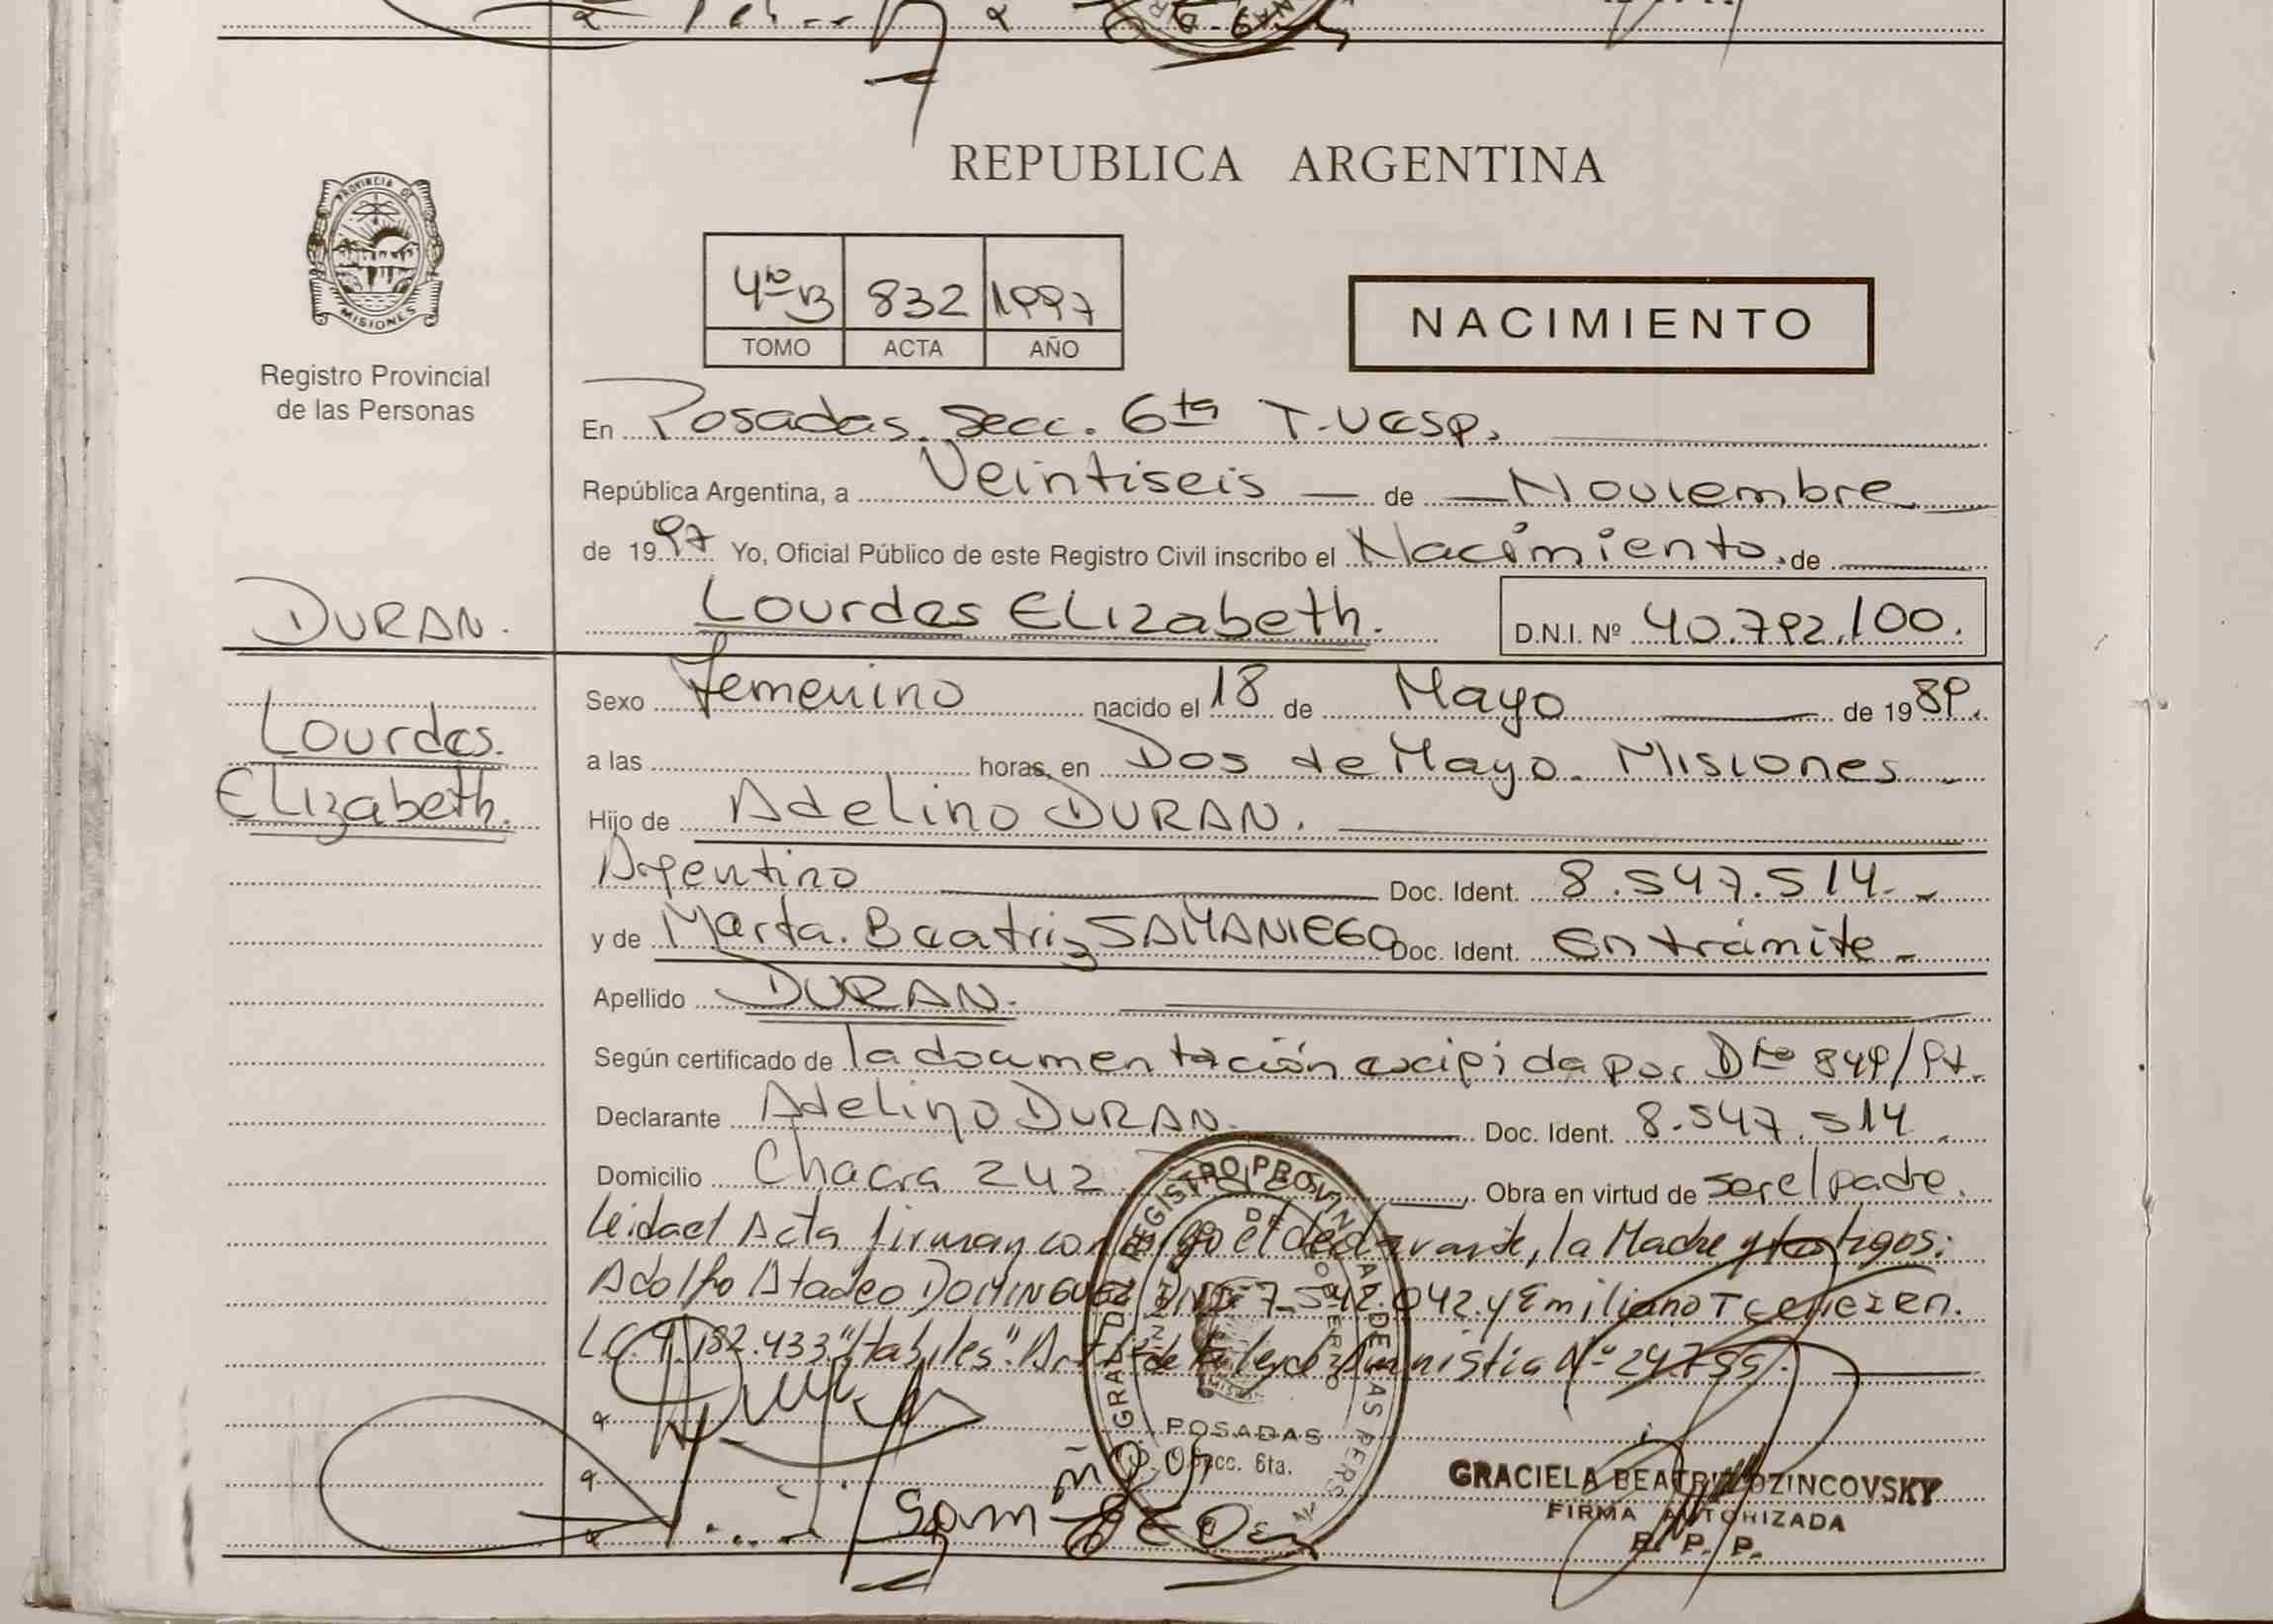 REPUBLICA ARGENTINA
PROVINCIA DE
MISIONES
Registro Provincial
de las Personas
4to B 832 1997
TOMO ACTA AÑO
NACIMIENTO
En Posadas. Secc. 6ta T. Vesp.
República Argentina, a Veintiseis de Noviembre
de 1997 Yo, Oficial Público de este Registro Civil inscribo el Nacimiento. de
DURAN.
Lourdes ELizabeth. D.N.I. Nº 40.792.100.
Lourdes.
ELizabeth.
Sexo Femenino nacido el 18 de Mayo de 1989.
a las horas, en Dos de Mayo. Misiones
Hijo de Adelino DURAN.
Argentino Doc. Ident. 8.547.514.
y de Marta. Beatriz SAMANIEGO Doc. Ident. En trámite
Apellido DURAN.
Según certificado de la documentación exigida por Dto 849/97.
Declarante Adelino DURAN. Doc. Ident. 8.547.514
Domicilio Chacra 242 Obra en virtud de ser el padre.
Leida el Acta firman conmigo el declarante, la Madre y testigos:
Adolfo DOMINGUEZ 7.542.042. y Emiliano
L.E. 182.433 "Habiles". de la ley de Amnistia Nº
REGISTRO PROVINCIAL DE LAS PERS
POSADAS
Secc. 6ta.
GRACIELA BEATRIZ OZINCOVSKY
FIRMA AUTORIZADA
R. P. P.